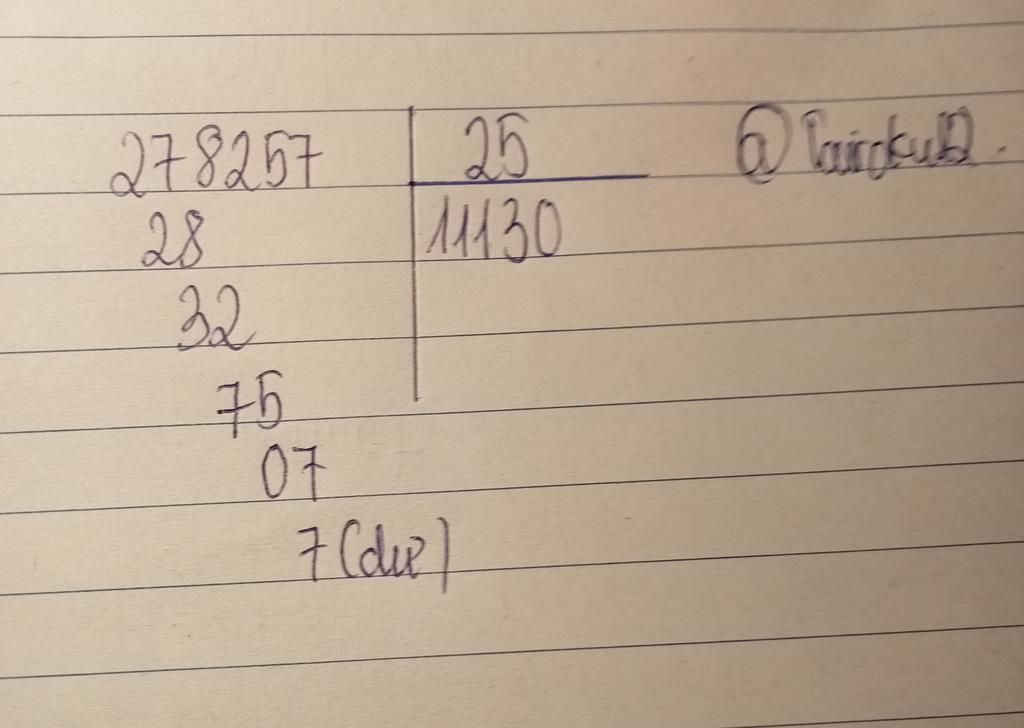 278257 25
28 11130
32
75
07
7 (dư)